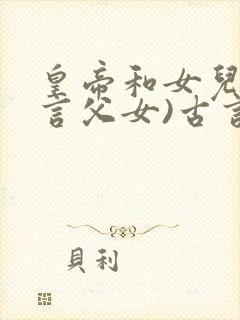 皇帝和女兒
言父女)古言
貝利